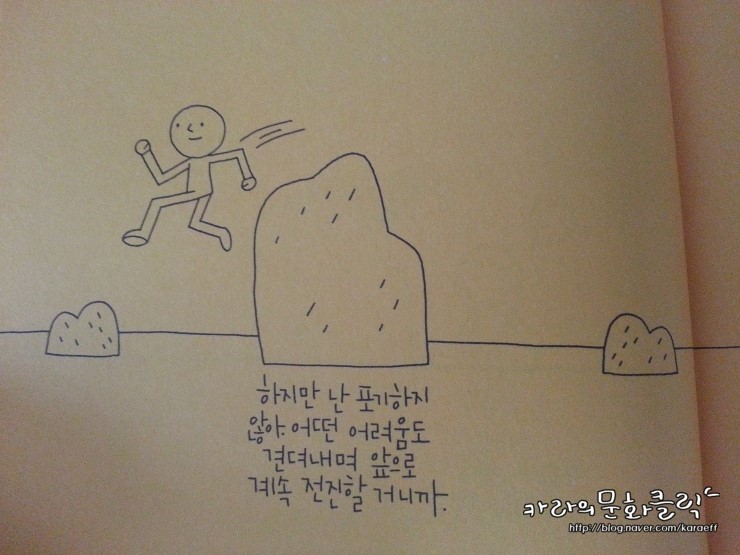 하지만 난 포기하지
않아. 어떤 어려움도
견뎌내며 앞으로
계속 전진할 거니까.
카라의문화클릭
http://blog.naver.com/karaeff